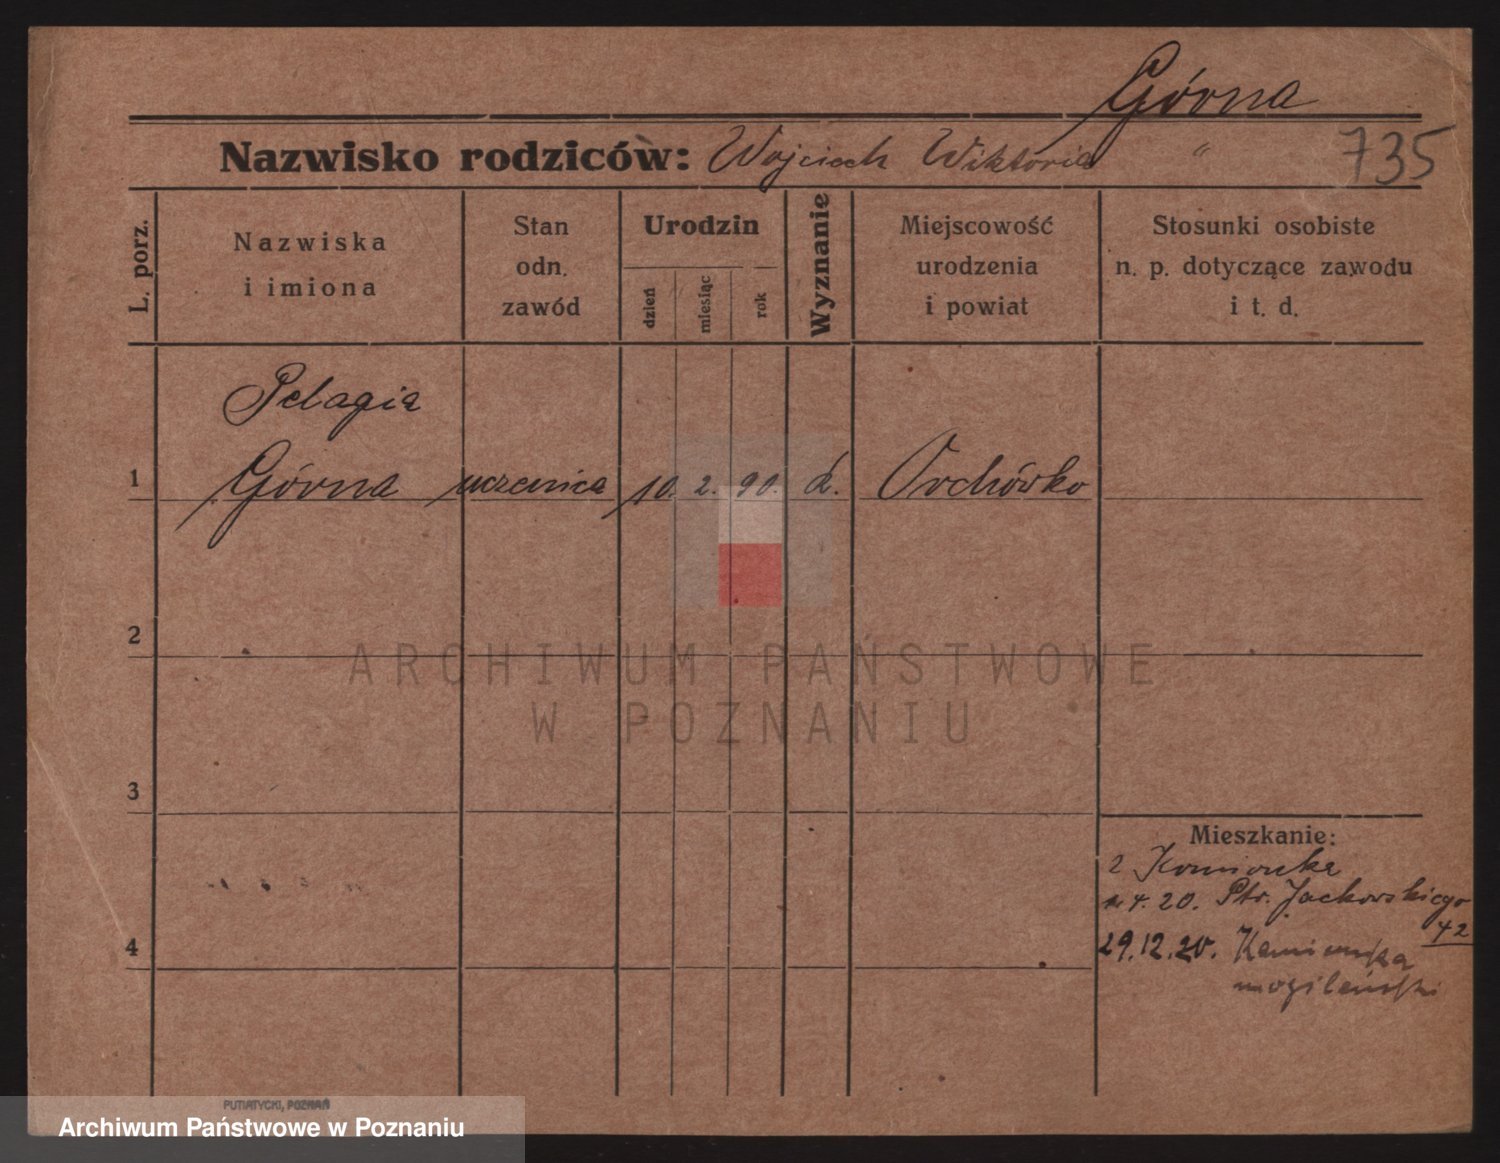 Górna
Nazwisko rodziców: Wojciech Wiktoria "
735
L. porz.
Nazwiska
i imiona
Stan
odn.
zawód
Urodzin
dzień
miesiąc
rok
Wyznanie
Miejscowość
urodzenia
i powiat
Stosunki osobiste
n. p. dotyczące zawodu
i t. d.
Pelagia
1 Górna uczenica 10. 2. 90. k. Orchówko
2
3
4
Mieszkanie:
z
4. 20. Ptr. Jackowskiego
42
29.12.20. Kamionka
mogileński
ARCHIWUM PAŃSTWOWE
W POZNANIU
PUTIATYCKI, POZNAŃ
Archiwum Państwowe w Poznaniu